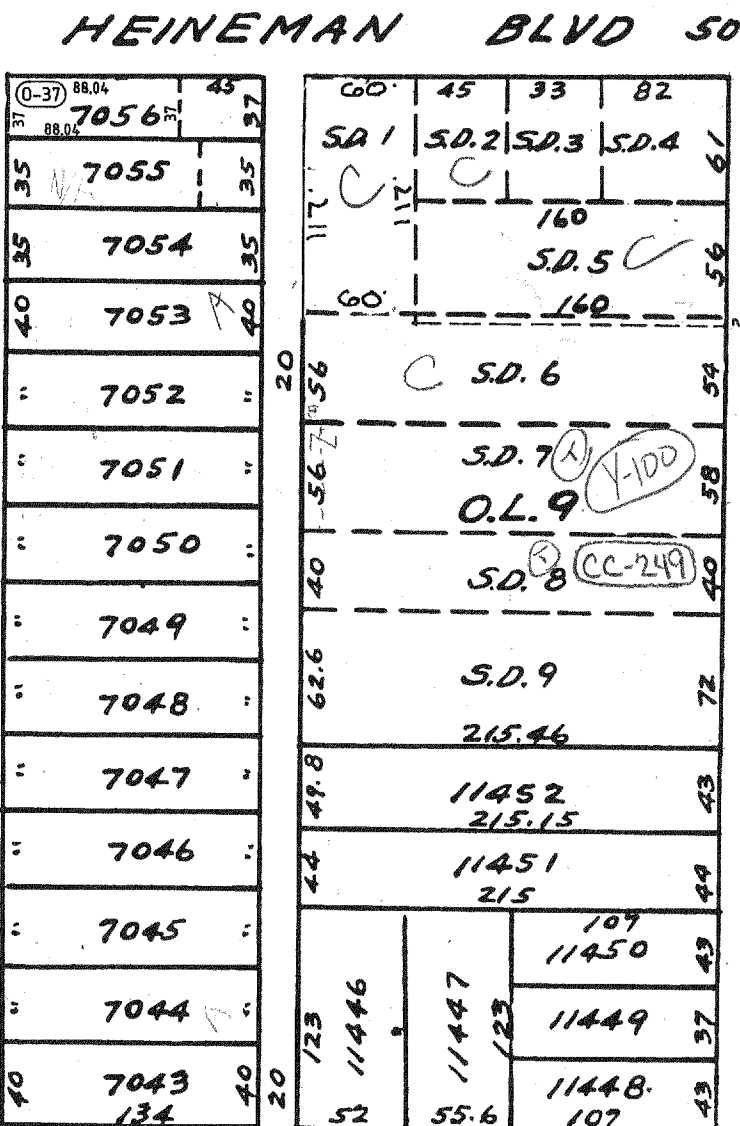 HEINEMAN BLVD 50
O-37 88.04 45
37 7056 37 37
88.04
35 7055 35
NA
35 7054 35
40 7053 A 40
" 7052 "
" 7051 "
" 7050 "
" 7049 "
" 7048 "
" 7047 "
" 7046 "
" 7045 "
" 7044 A "
40 7043 40
134
20
20
60. 45 33 82
S.D. 1 S.D. 2 S.D. 3 S.D. 4 61
C C
117. 117.
160
S.D. 5 C 56
60. 160
56 C S.D. 6 54
56 S.D. 7 Y-100 58
O.L. 9
40 S.D. 8 CC-249 40
62.6 S.D. 9 72
215.46
49.8 11452 43
215.15
44 11451 44
215
107
11450 43
123 11446 11447 123
11449 37
11448. 43
52 55.6 107